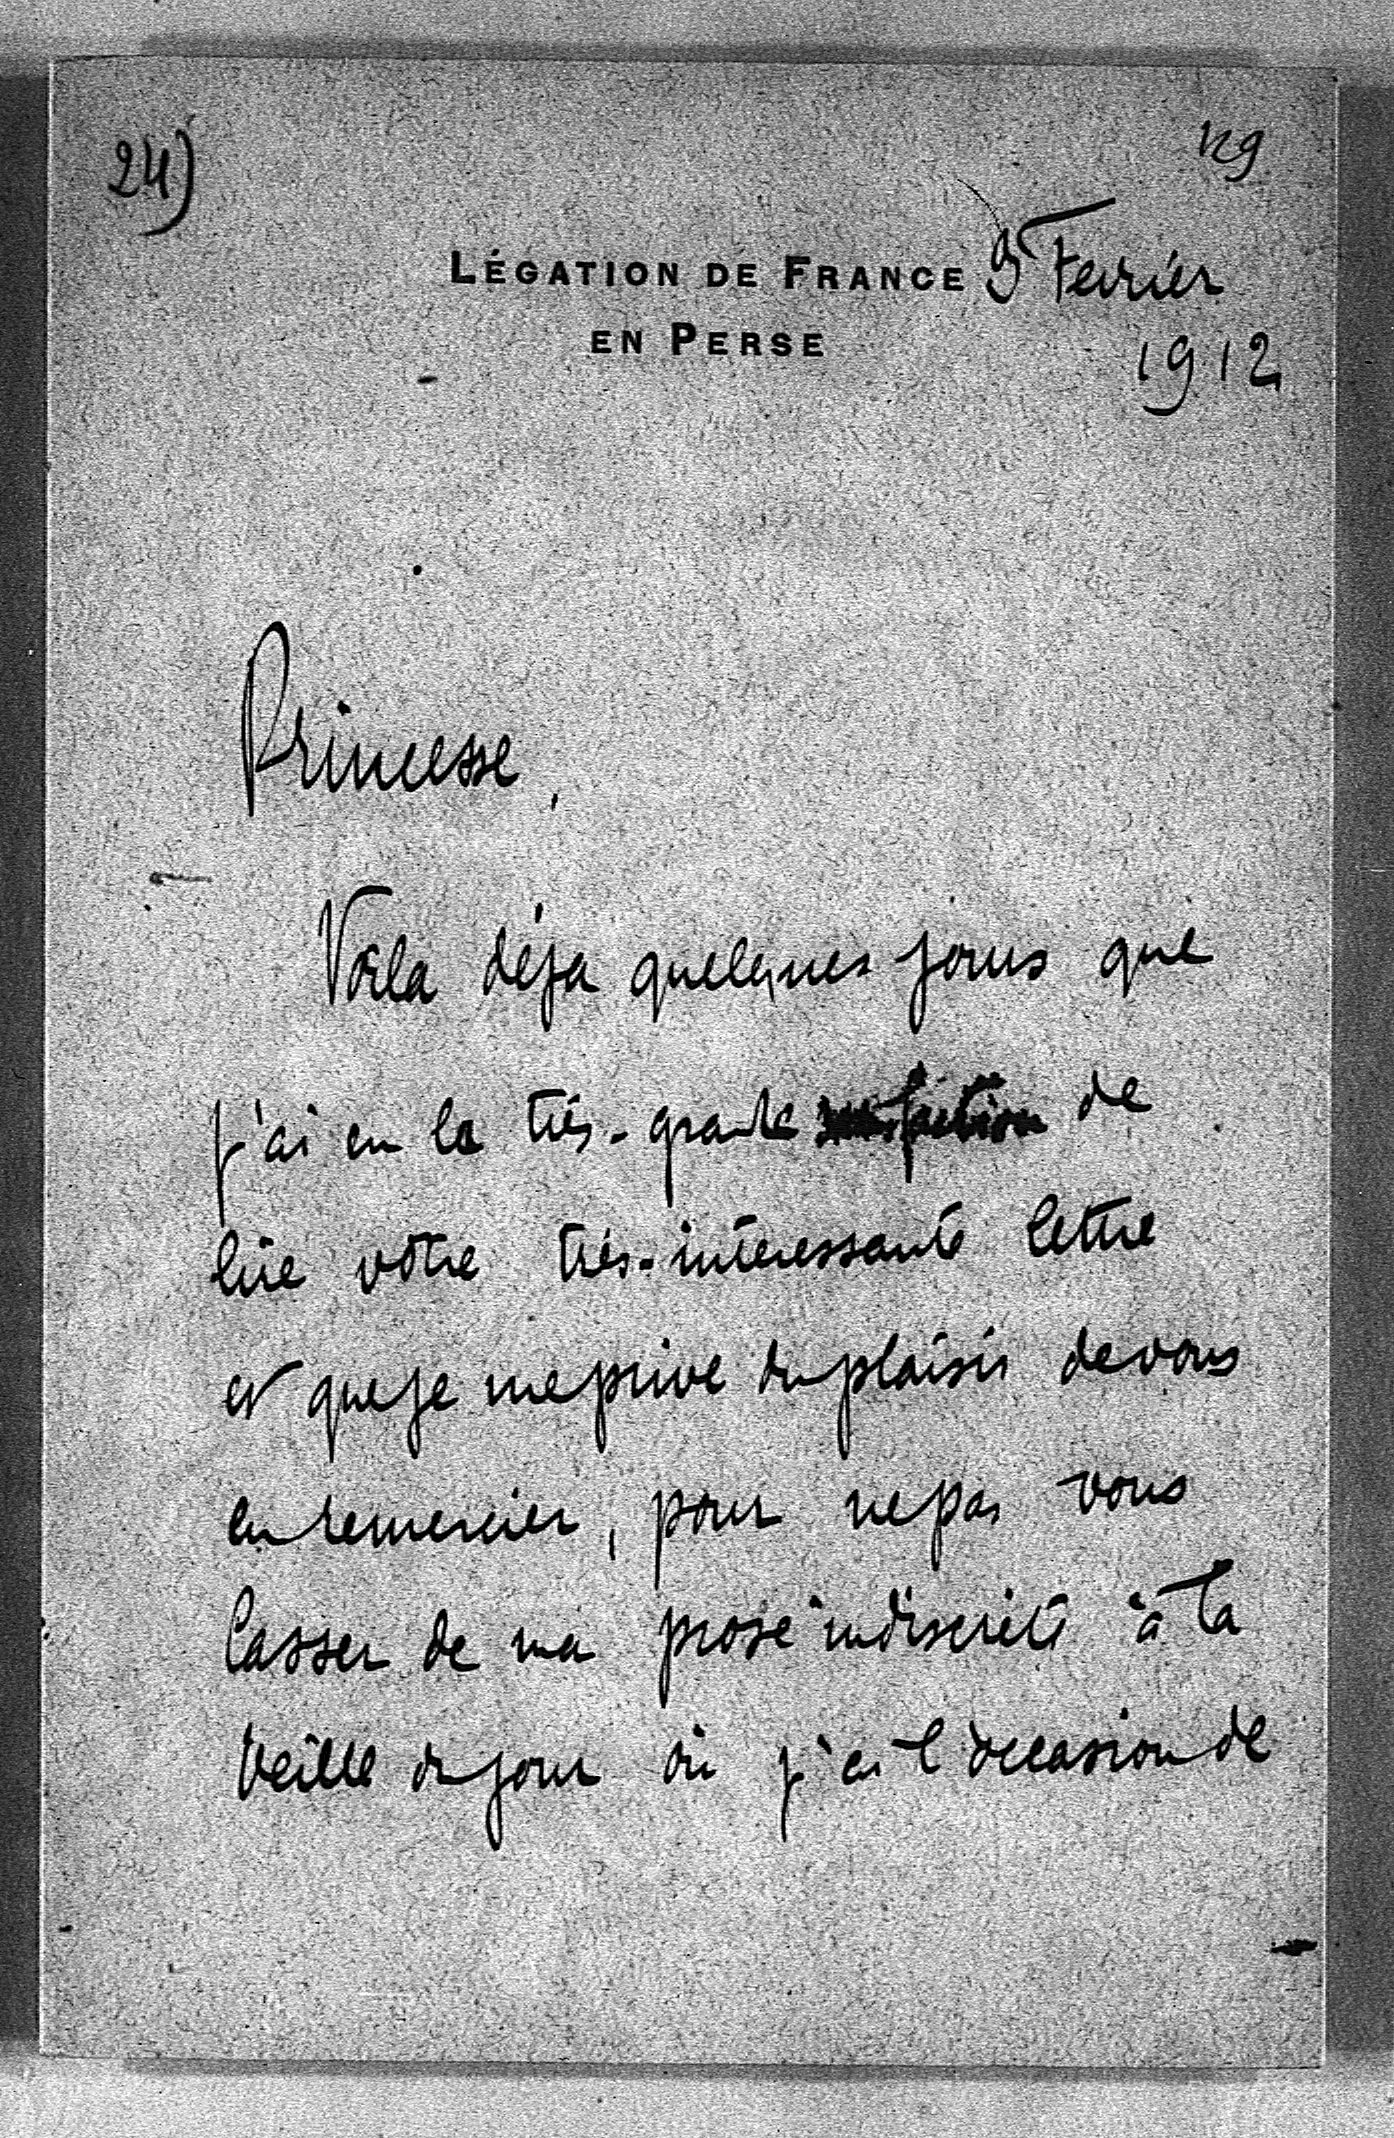 24)
129
LÉGATION DE FRANCE 9 Fevrier
EN PERSE 1912
Princesse,
Voila déja quelques jours que
j'ai eu la très-grande satisfaction de
lire votre très-intéressante lettre
et que je me prive du plaisir de vous
en remercier, pour ne pas vous
lasser de ma prose indiscrète à la
veille du jour où j'ai l'occasion de